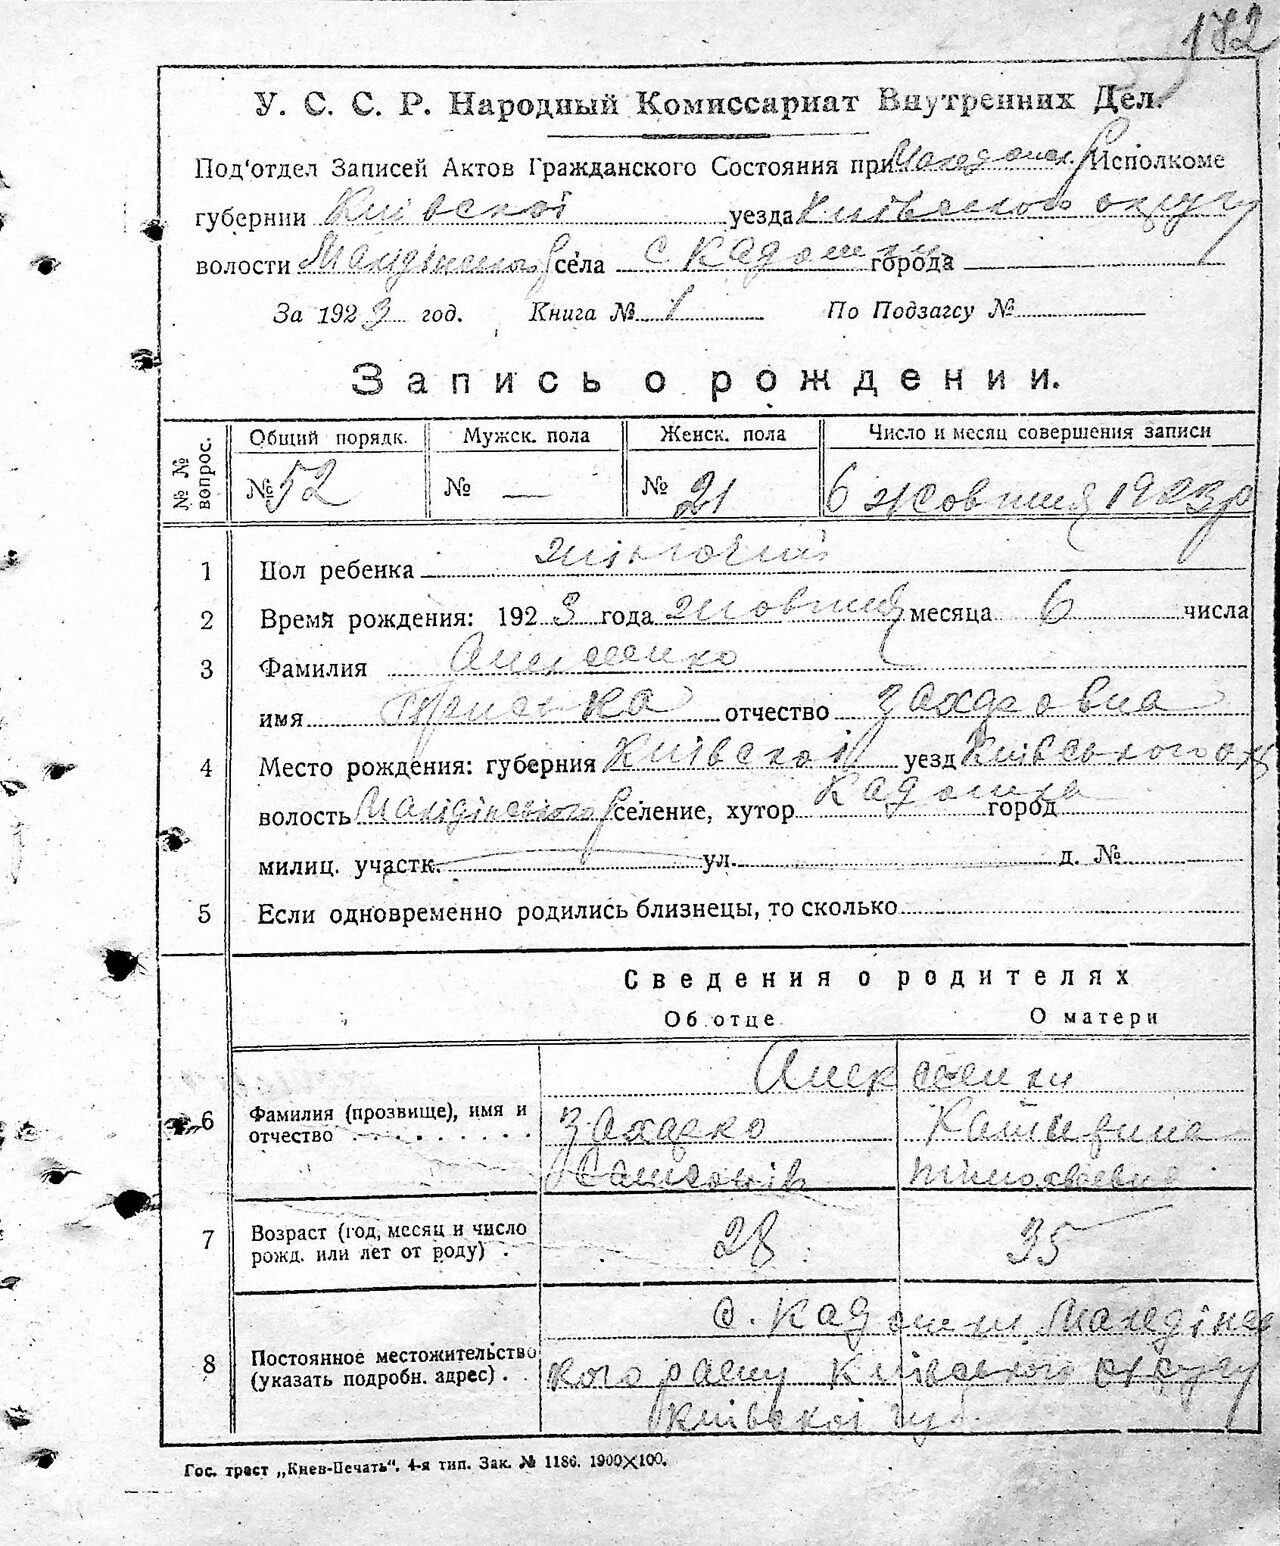 182
У. С. С. Р. Народный Комиссариат Внутренних Дел.
Под'отдел Записей Актов Гражданского Состояния при Исполкоме
губернии Київської уезда Київського округу
волости села с. Кадомка города
За 1923 год. Книга № 1 По Подзагсу №
Запись о рождении.
№ № вопрос. Общий порядк. Мужск. пола Женск. пола Число и месяц совершения записи
№ 52 № — № 21 6 жовтня 1923 р
1 Пол ребенка жіночий
2 Время рождения: 1923 года жовтня месяца 6 числа
3 Фамилия
имя отчество Захаровна
4 Место рождения: губерния Київської уезд Київського окр
волость селение, хутор Кадомка город
милиц. участк. ул. д. №
5 Если одновременно родились близнецы, то сколько
Сведения о родителях
Об отце О матери
6 Фамилия (прозвище), имя и отчество
Алексеенки
Захарко Катерина
7 Возраст (год, месяц и число рожд. или лет от роду) . 28 35
8 Постоянное местожительство (указать подробн. адрес) .
с. Кадомки
кого райну Київського округу
Київської губ.
Гос. трест „Киев-Печать". 4-я тип. Зак. № 1186. 1900×100.